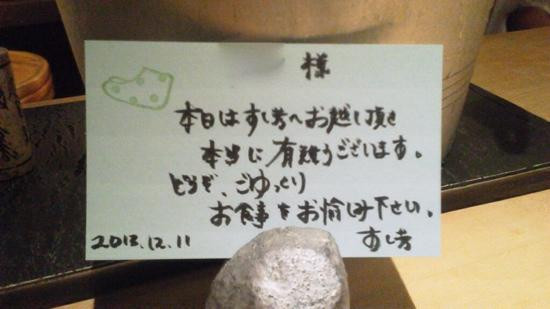 様
本日はすし芳へお越し頂き
本当に有難うございます。
どうぞ、ごゆっくり
お食事をお愉しみ下さい。
2013.12.11 すし芳